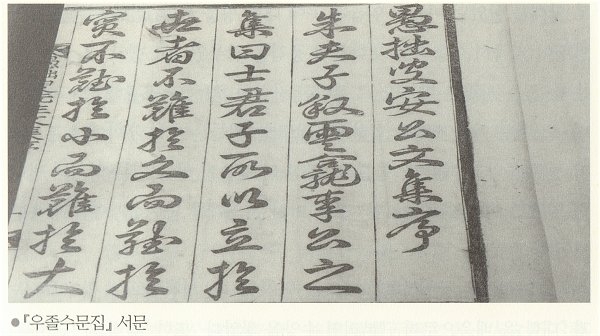 愚拙叟安公文集序
朱夫子叙雲龕李公之
集曰士君子所以立於
世者不難於文而難於
實不難於小而難於大
●『우졸수문집』 서문